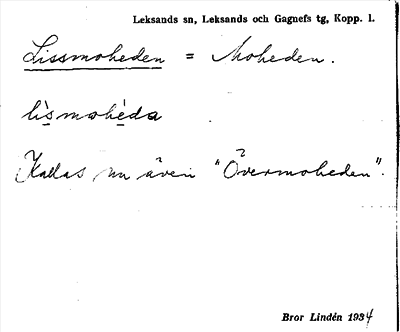 Leksands sn, Leksands och Gagnefs tg, Kopp. l.
Lissmoheden = Moheden.
lìsmohèda
Kallas nu även "Övermoheden".
Bror Lindén 1934